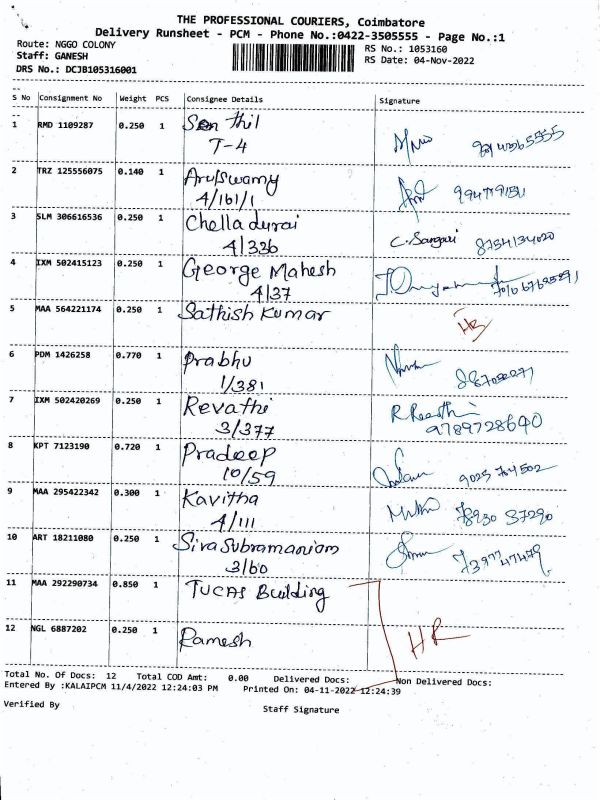 THE PROFESSIONAL COURIERS, Coimbatore
Delivery Runsheet - PCM - Phone No.:0422-3505555 - Page No.:1
Route: NGGO COLONY
Staff: GANESH
DRS No.: DCJB105316001
RS No.: 1053160
RS Date: 04-Nov-2022
S No Consignment No Weight PCS Consignee Details Signature
1 RMD 1109287 0.250 1 Senthil
T-4
2 TRZ 125556075 0.140 1 Arulswamy
4/161/1
3 SLM 306616536 0.250 1 Chelladurai C. Sangari 8754134020
4/326
4 IXM 502415123 0.250 1 George Mahesh
4/37
5 MAA 564221174 0.250 1 Sathish Kumar
6 PDM 1426258 0.770 1 Prabhu
1/381
7 IXM 502420269 0.250 1 Revathi
3/377 9789728640
8 KPT 7123190 0.720 1 Pradeep
10/59 9025 764502
9 MAA 295422342 0.300 1 Kavitha 78930 37290
4/111
10 ART 18211080 0.250 1 Sivasubramaniam
3/60
11 MAA 292290734 0.850 1 TUCAS Building
12 NGL 6887202 0.250 1 Ramesh HR
Total No. Of Docs: 12 Total COD Amt: 0.00 Delivered Docs: Non Delivered Docs:
Entered By :KALAIPCM 11/4/2022 12:24:03 PM Printed On: 04-11-2022 12:24:39
Verified By Staff Signature